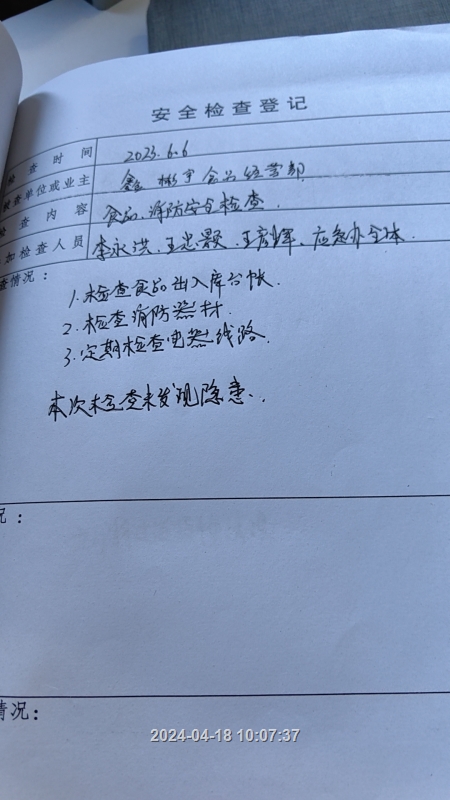 安全检查登记
检查时间 2023.6.6
被查单位或业主 鑫彬宇食品经营部
检查内容 食品、消防安全检查.
加检查人员 李永洪、王忠颢、王彦辉、应急办全体.
查情况：
1.检查食品出入库台帐.
2.检查消防器材.
3.定期检查电器线路.
本次检查未发现隐患.
况：
情况：
2024-04-18 10:07:37